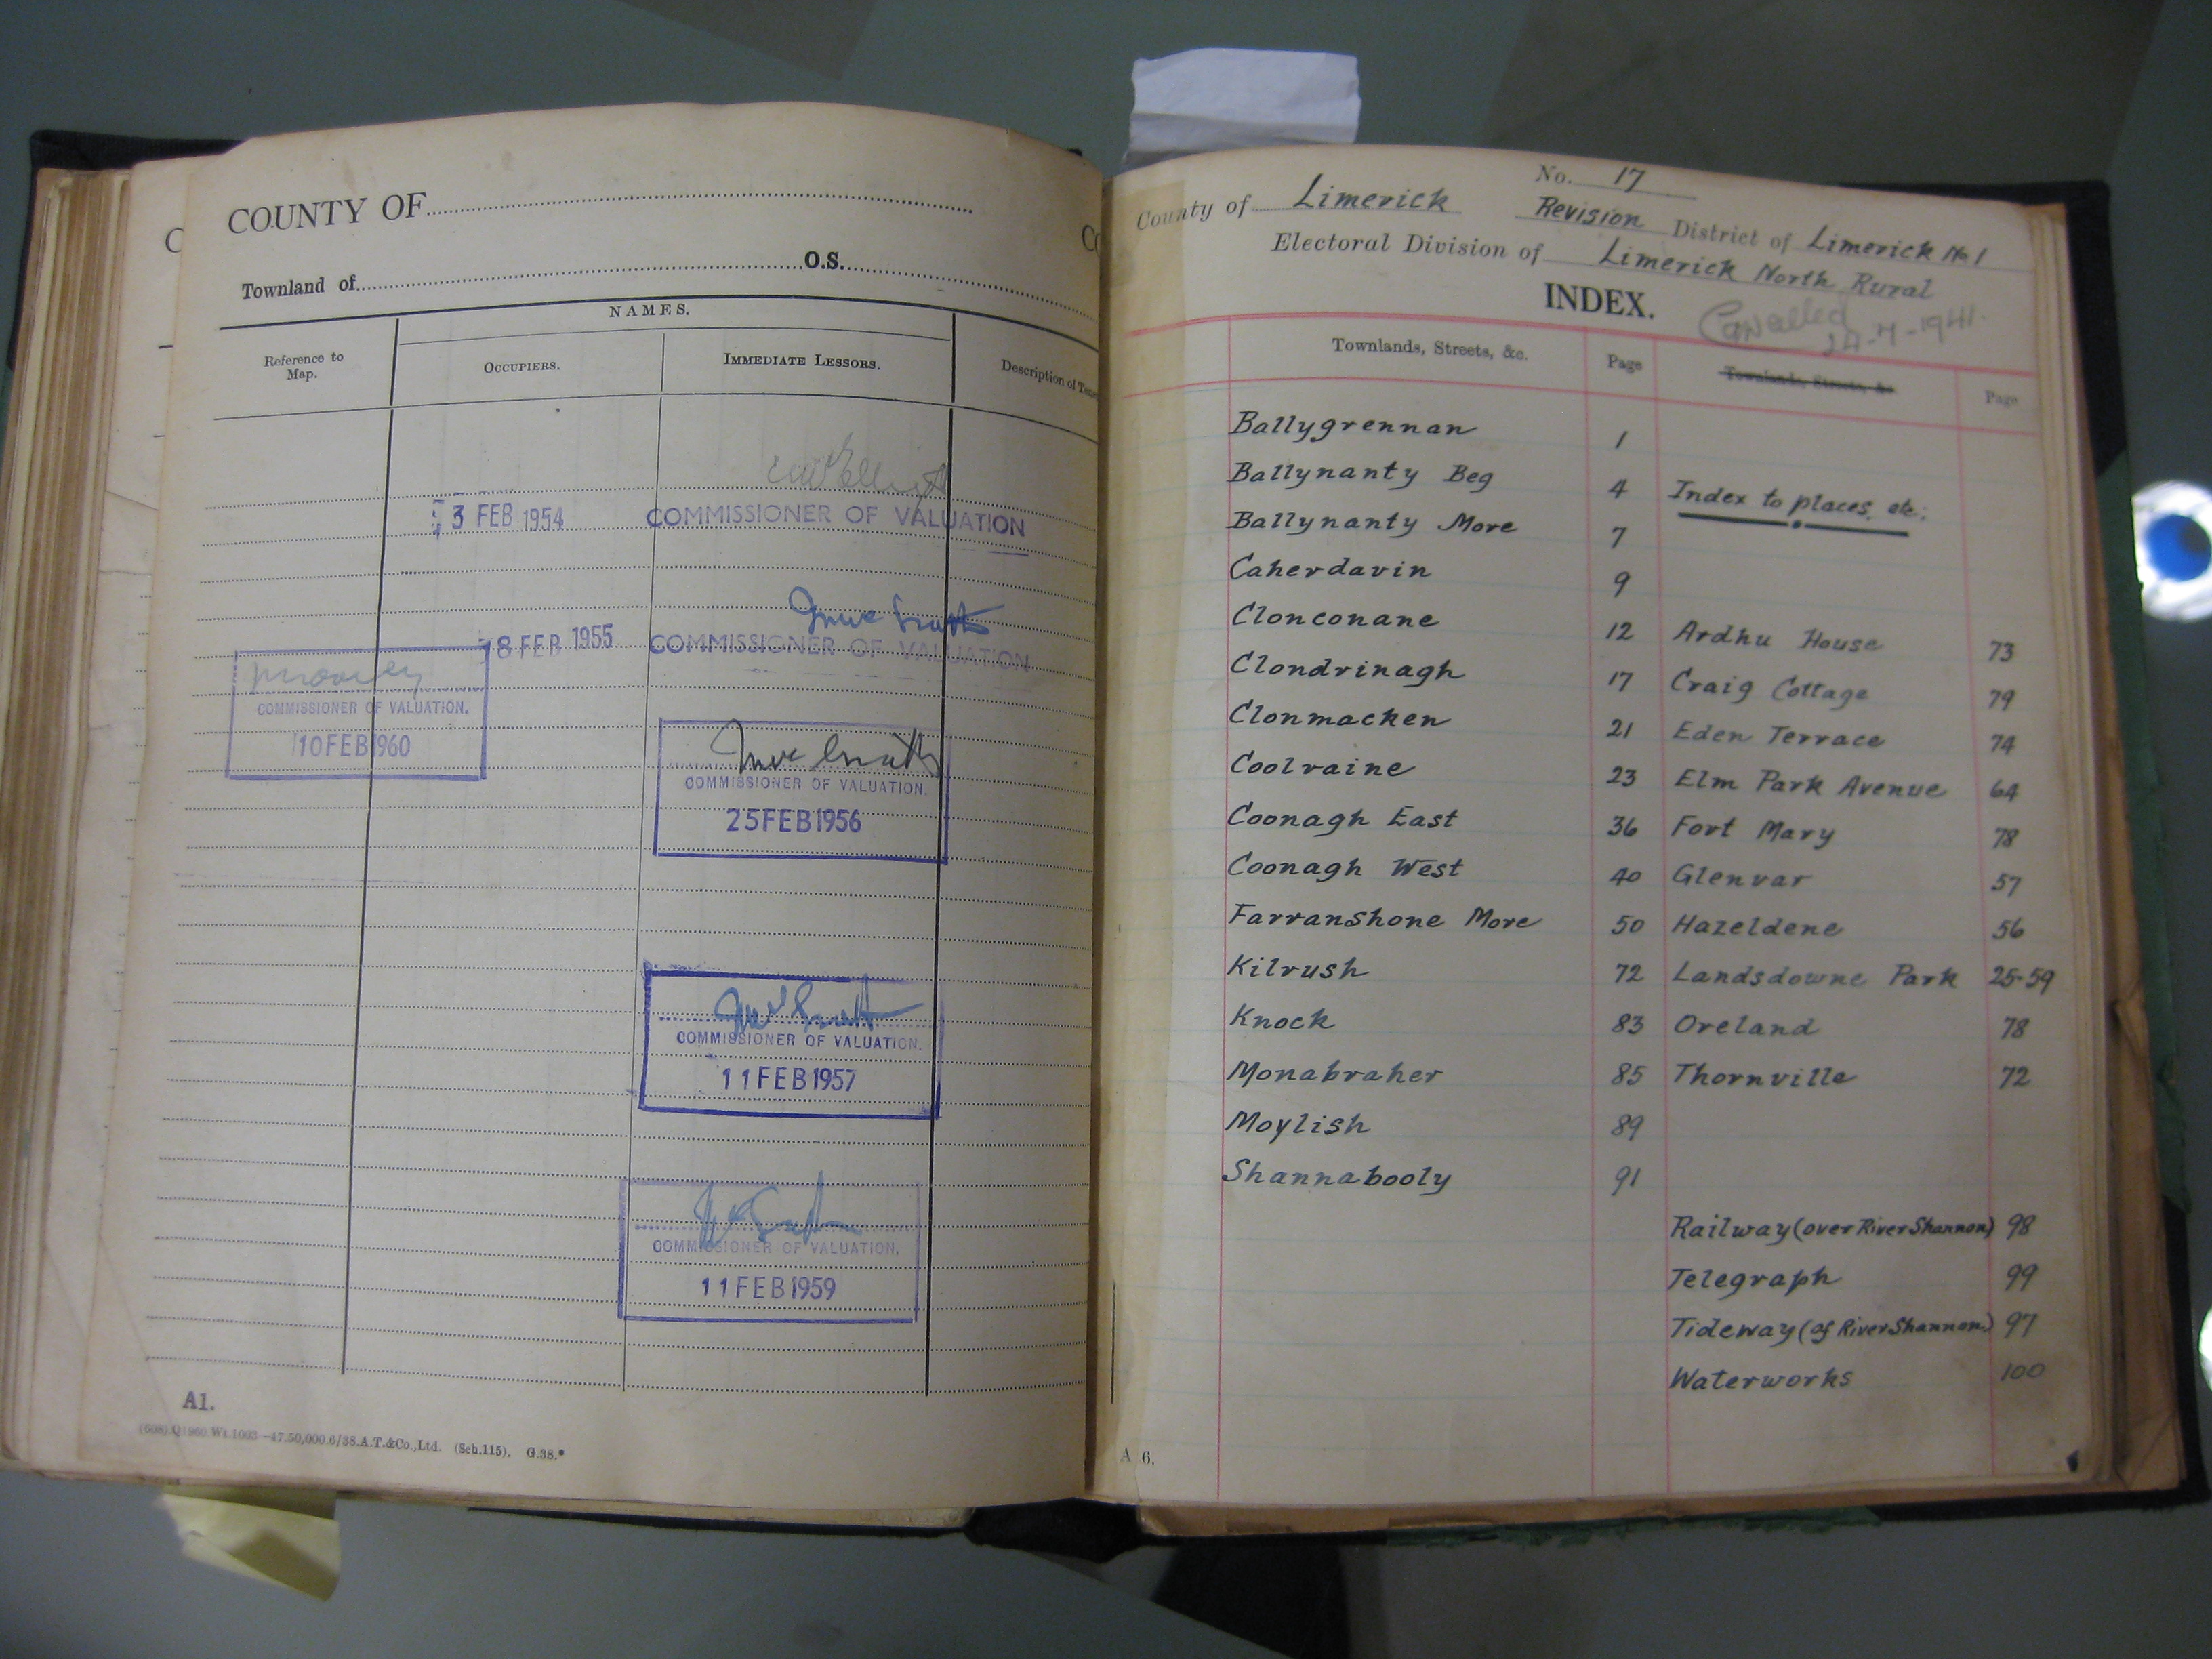 COUNTY OF
Townland of O.S.
NAMES.
Reference to Map.
OCCUPIERS.
IMMEDIATE LESSORS.
Description of
3 FEB 1954 COMMISSIONER OF VALUATION
8 FEB 1955 COMMISSIONER OF VALUATION
COMMISSIONER OF VALUATION.
10 FEB 1960
COMMISSIONER OF VALUATION.
25 FEB 1956
COMMISSIONER OF VALUATION.
11 FEB 1957
COMMISSIONER OF VALUATION.
11 FEB 1959
A1.
(Sch.115). G.38.*
No. 17
County of Limerick Revision District of Limerick No. 1
Electoral Division of Limerick North Rural
INDEX.
Cancelled
24-7-1941.
Townlands, Streets, &c. Page Townlands, Streets, &c. Page
Ballygrennan 1
Ballynanty Beg 4 Index to places, etc:
Ballynanty More 7
Caherdavin 9
Clonconane 12 Ardhu House 73
Clondrinagh 17 Craig Cottage 79
Clonmacken 21 Eden Terrace 74
Coolraine 23 Elm Park Avenue 64
Coonagh East 36 Fort Mary 78
Coonagh West 40 Glenvar 57
Farranshone More 50 Hazeldene 56
Kilrush 72 Landsdowne Park 25-59
Knock 83 Oreland 78
Monabraher 85 Thornville 72
Moylish 89
Shannabooly 91
Railway (over River Shannon) 98
Telegraph 99
Tideway (of River Shannon) 97
Waterworks 100
A 6.